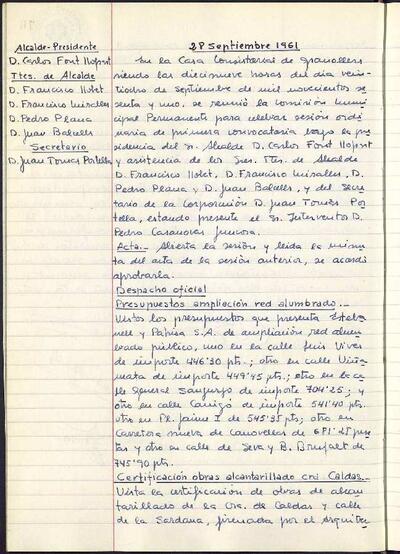 Alcalde-Presidente
D. Carlos Font Llopart
Ttes. de Alcalde
D. Francisco Llobet
D. Francisco Miralles
D. Pedro Plana
D. Juan Balcells
Secretario
D. Juan Tomás Portella
28 Septiembre 1961
En la Casa Consistorial de Granollers
siendo las diecinueve horas del día vein-
tiocho de Septiembre de mil novecientos se-
senta y uno, se reunió la Comisión Muni-
cipal Permanente para celebrar sesión ordi-
naria de primera convocatoria bajo la pre-
sidencia del Sr. Alcalde D. Carlos Font Llopart
y asistencia de los Sres. Ttes. de Alcalde
D. Francisco Llobet, D. Francisco Miralles, D.
Pedro Plana y D. Juan Balcells, y del Secre-
tario de la Corporación D. Juan Tomás Por-
tella, estando presente el Sr. Interventor D.
Pedro Casanovas
Acta.- Abierta la sesión y leída la minu-
ta del acta de la sesión anterior, se acordó
aprobarla.
Despacho oficial
Presupuestos ampliación red alumbrado.-
Vistos los presupuestos que presenta Esteba-
nell y Pahisa S.A. de ampliación red alum-
brado público, uno en la calle Luis Vives
de importe 446'30 pts.; otro en calle Viña-
mata de importe 449'45 pts.; otro en la ca-
lle General Sanjurjo de importe 704'25; y
otro en calle Canigó de importe 541'40 pts.
otro en Pl. Jaime I de 545'35 pts; otro en
Carretera nueva de Canovellas de 681'25 pse-
tas y otro en calles de Seva y B. Brufalt de
745'90 pts.
Certificación obras alcantarillado cra. Caldas.
Vista la certificación de obras de alcan-
tarillado de la Cra. de Caldas y calle
de la Sardana, firmada por el Arquitec-